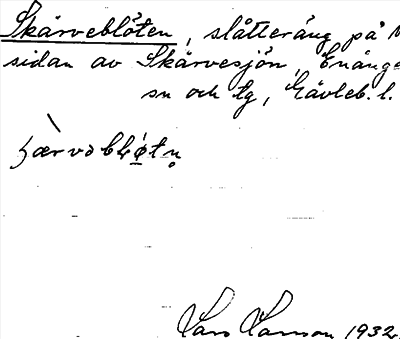 Skärveblöten, slåtteräng på N
sidan av Skärvesjön, Enånge
sn och tg, Gävleb. l.
Lars Larsson 1932.